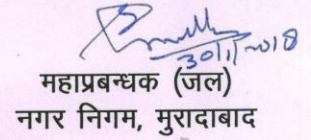 30/1/2018
महाप्रबन्धक (जल)
नगर निगम, मुरादाबाद